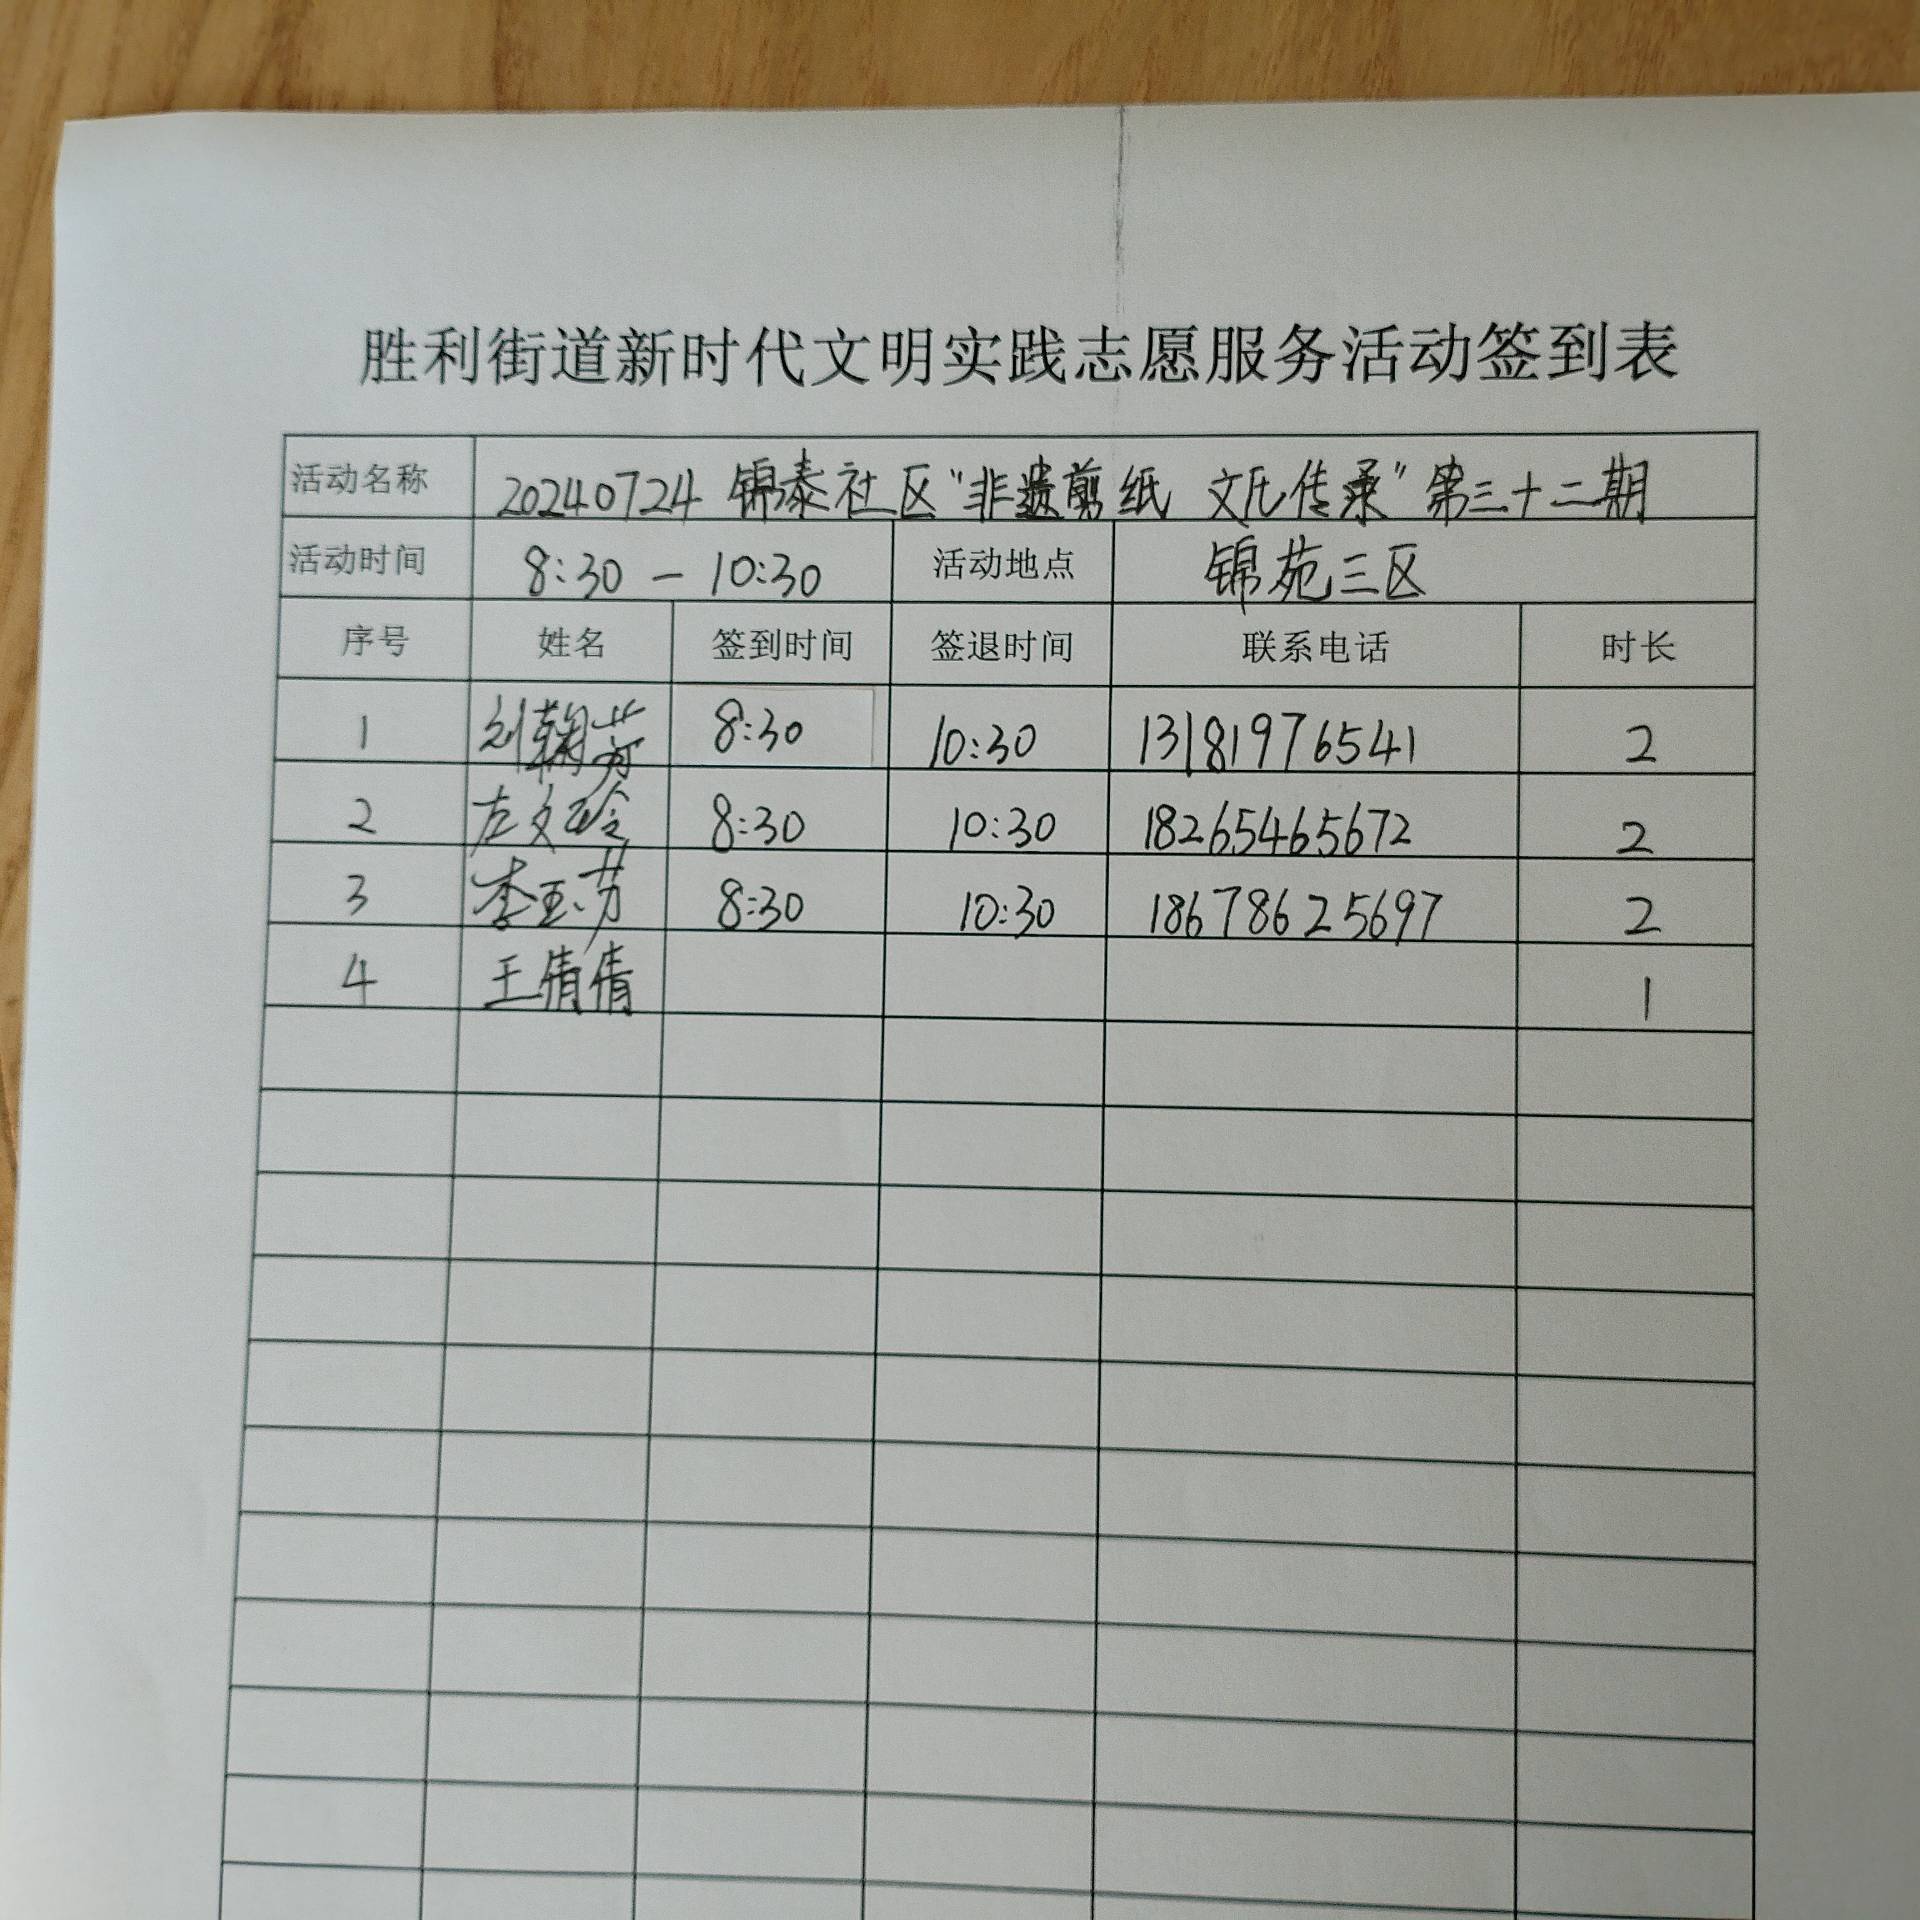 胜利街道新时代文明实践志愿服务活动签到表
活动名称 20240724 锦泰社区“非遗剪纸 文化传承”第三十二期
活动时间 8:30 — 10:30 活动地点 锦苑三区
序号 姓名 签到时间 签退时间 联系电话 时长
1 刘菊芳 8:30 10:30 13181976541 2
2 左文玲 8:30 10:30 18265465672 2
3 李玉芬 8:30 10:30 18678625697 2
4 王倩倩 1